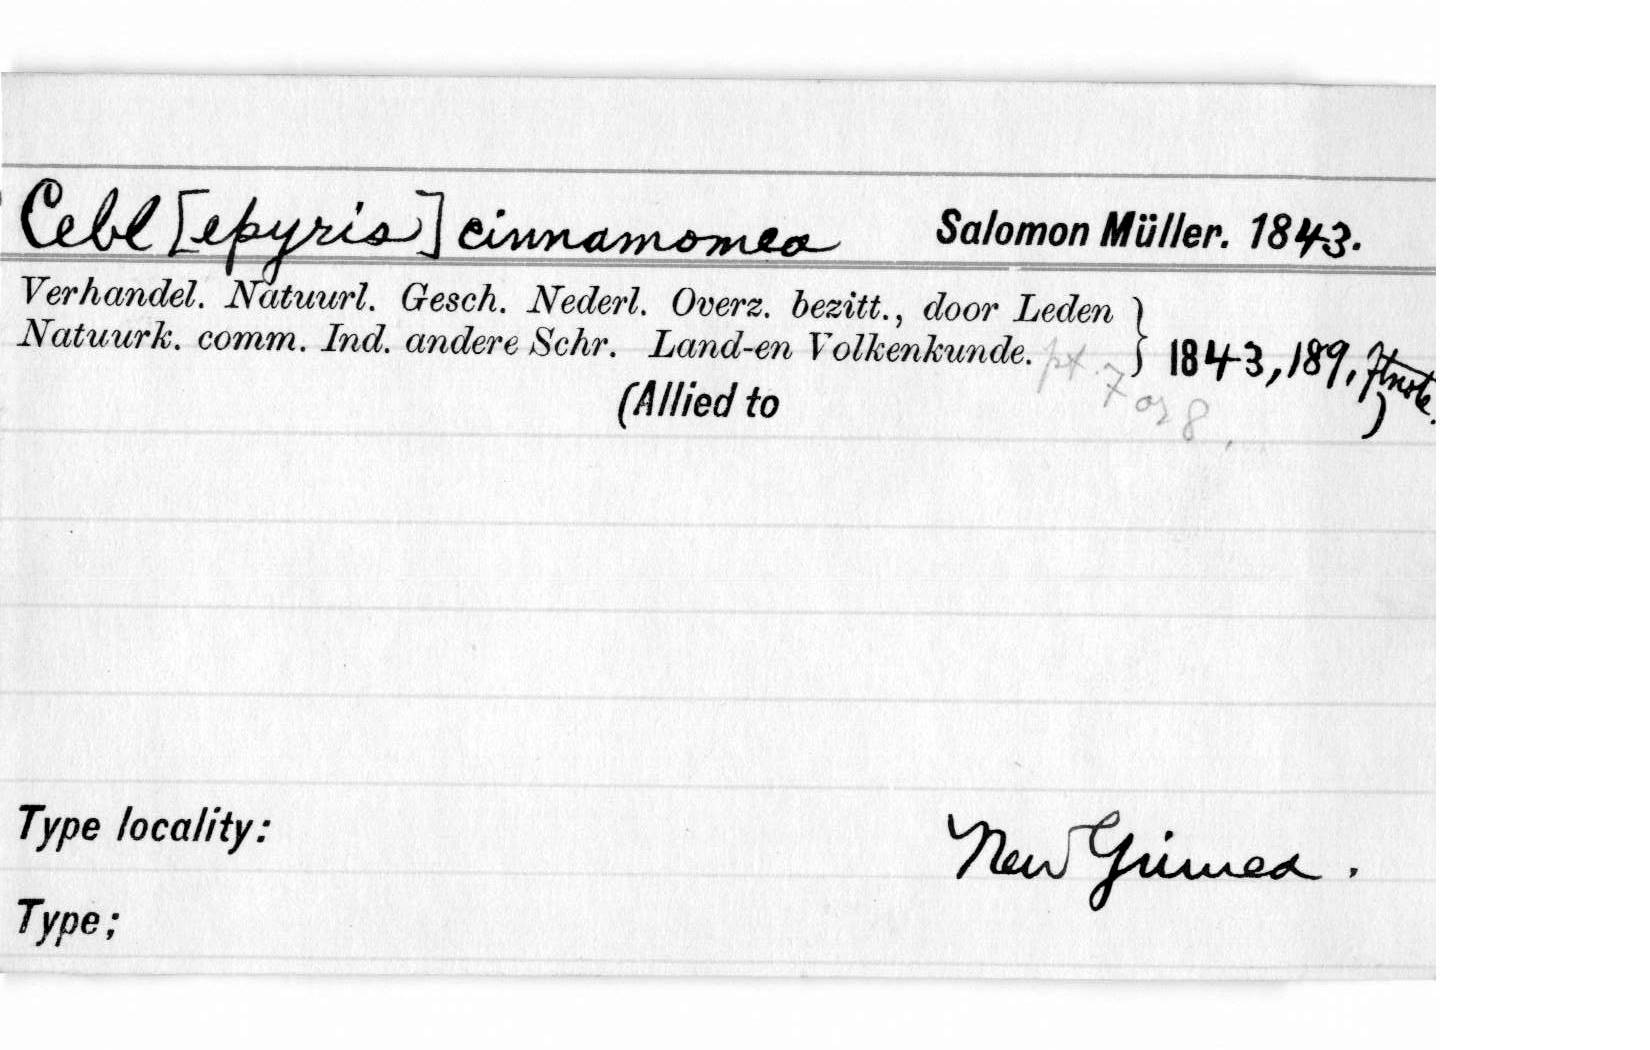 Cebl [epyris] cinnamomea Salomon Müller. 1843.
Verhandel. Natuurl. Gesch. Nederl. Overz. bezitt., door Leden
Natuurk. comm. Ind. andere Schr. Land-en Volkenkunde. } 1843, 189, ftnote.
pt. 7 or 8.
(Allied to )
Type locality: New Guinea.
Type;